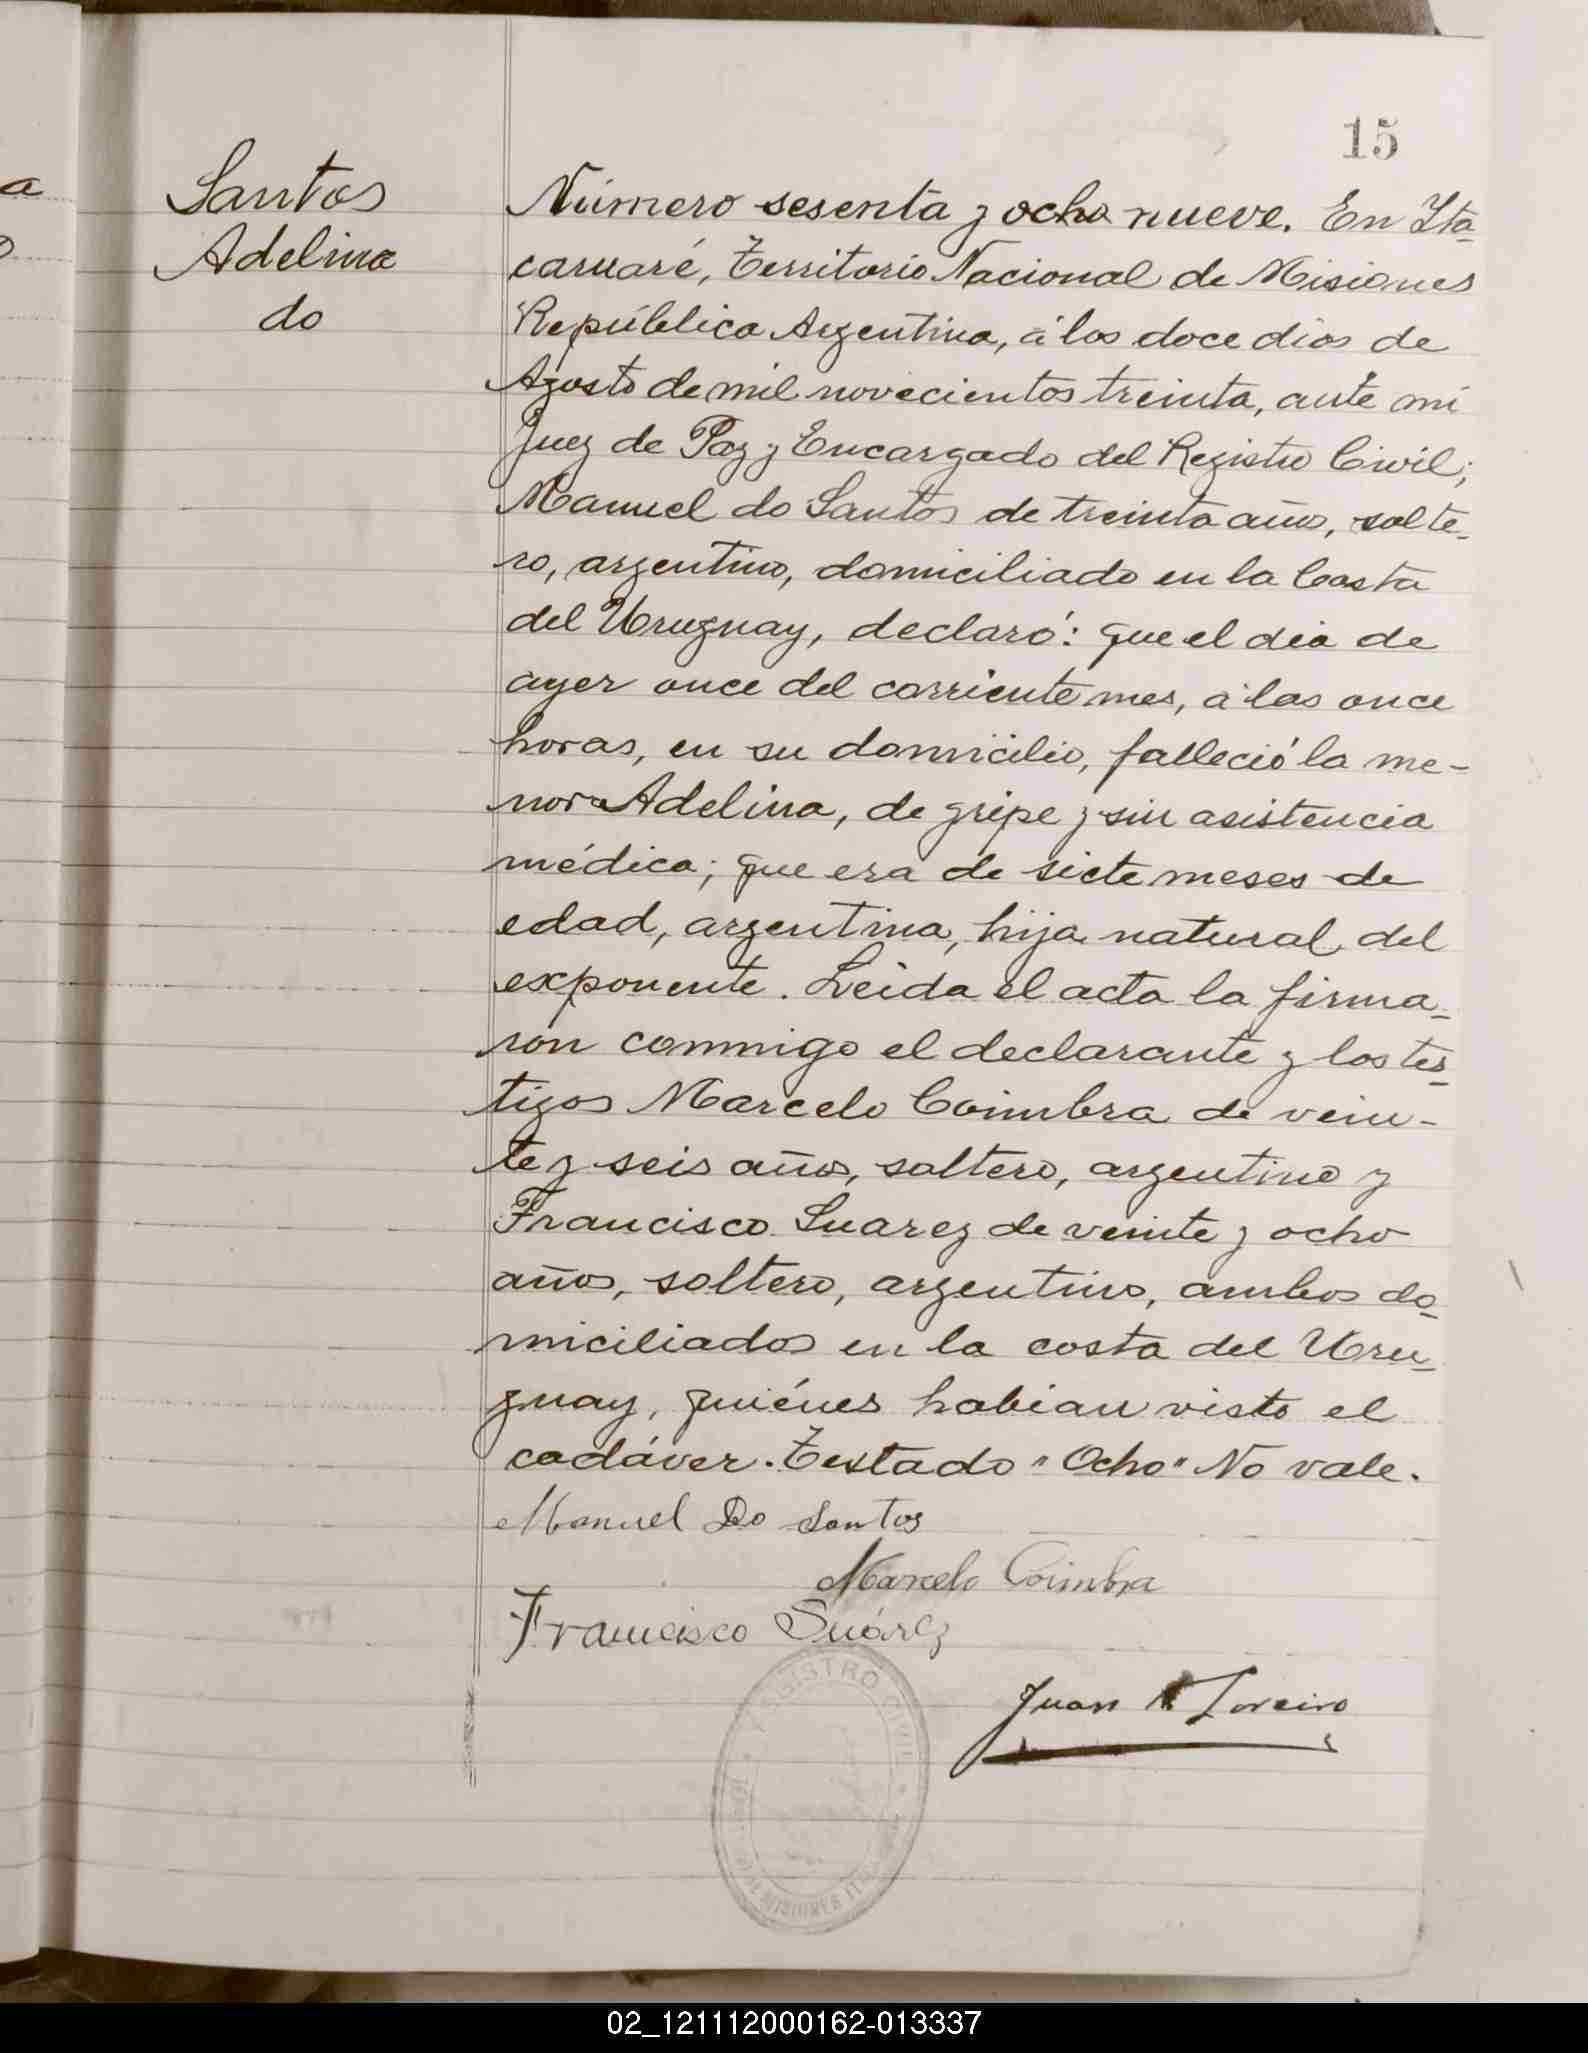 15
Santos
Adelina
do
Número sesenta y ocho nueve. En Ita-
caruaré, Territorio Nacional de Misiones
República Argentina, á los doce dias de
Agosto de mil novecientos treinta, ante mi
Juez de Paz y Encargado del Registro Civil;
Manuel do Santos de treinta años, solte-
ro, argentino, domiciliado en la Costa
del Uruguay, declaró: que el dia de
ayer once del corriente mes, á las once
horas, en su domicilio, falleció la me-
nora Adelina, de gripe y sin asistencia
médica; que era de siete meses de
edad, argentina, hija natural del
exponente. Leida el acta la firma-
ron conmigo el declarante y los tes-
tigos Marcelo Coimbra de vein-
te y seis años, soltero, argentino y
Francisco Suarez de veinte y ocho
años, soltero, argentino, ambos do-
miciliados en la costa del Uru-
guay, quiénes habian visto el
cadáver. Testado "Ocho" No vale.
Manuel Do Santos
Marcelo Coimbra
Francisco Suárez
Juan Loreiro
REGISTRO CIVIL
MISIONES
02_121112000162-013337